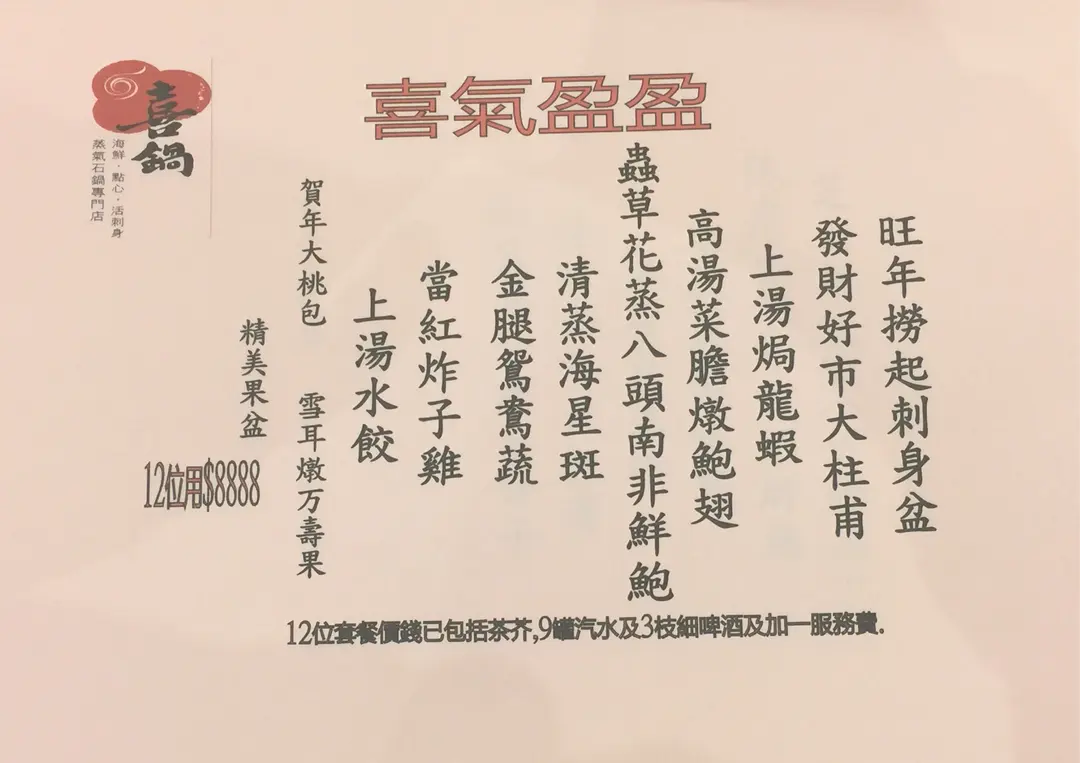 喜鍋
海鮮·點心·活刺身
蒸氣石鍋專門店
喜氣盈盈
旺年撈起刺身盆
發財好市大柱甫
上湯焗龍蝦
高湯菜膽燉鮑翅
蟲草花蒸八頭南非鮮鮑
清蒸海星斑
金腿鴛鴦蔬
當紅炸子雞
上湯水餃
賀年大桃包 雪耳燉万壽果
精美果盆
12位用$8888
12位套餐價錢已包括茶芥,9罐汽水及3枝細啤酒及加一服務費.